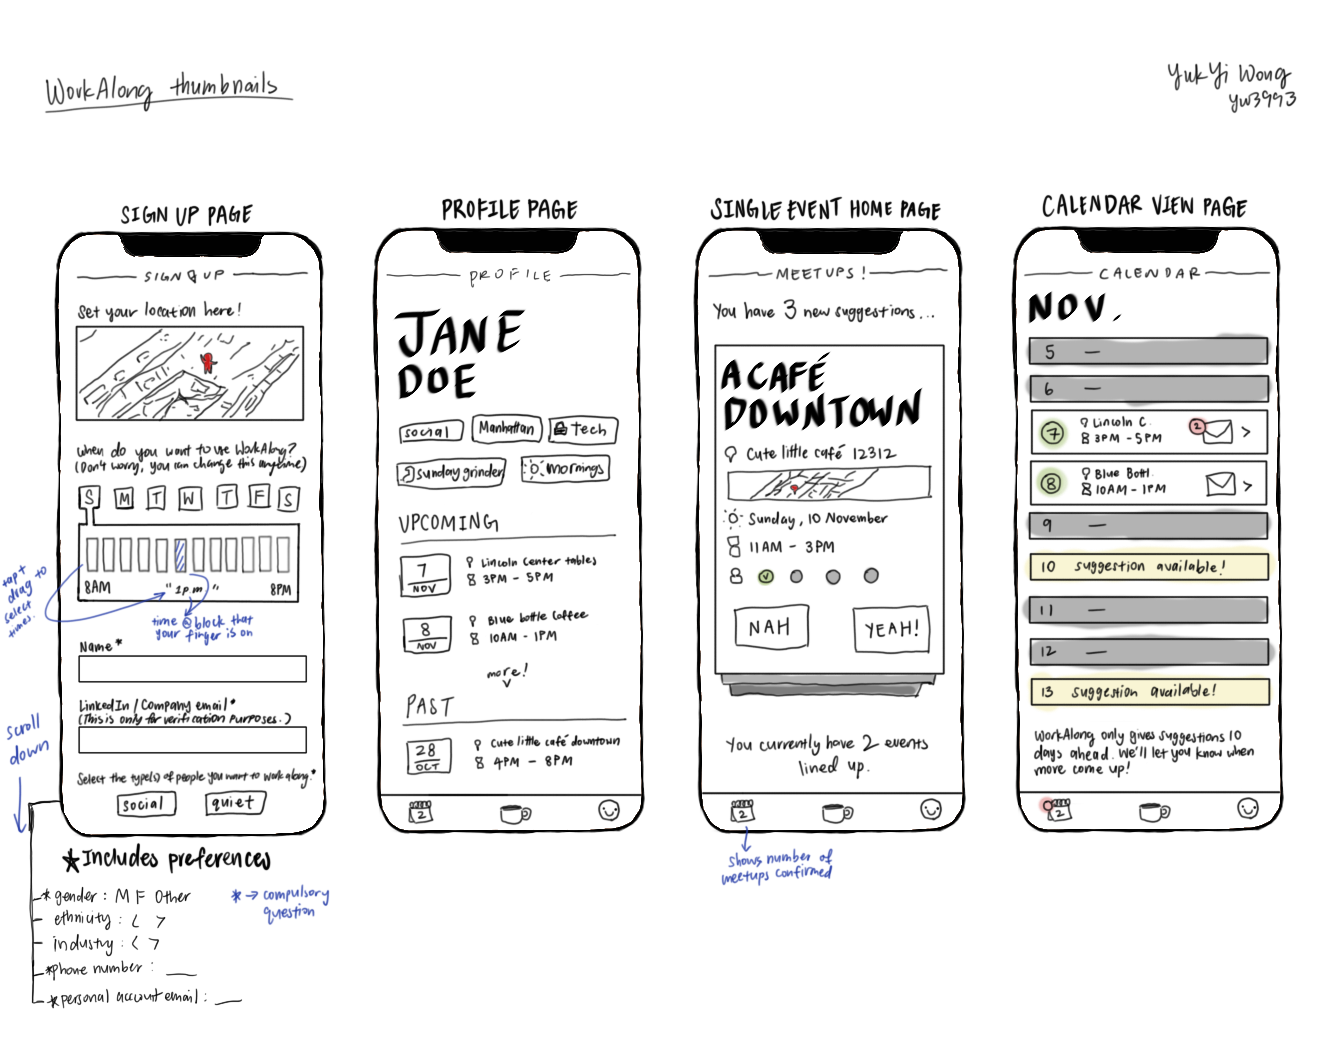 WorkAlong thumbnails
YukYi Wong
yw3993
SIGN UP PAGE
SIGN UP
Set your location here!
When do you want to use WorkAlong?
(Don't worry, you can change this anytime)
S M T W T F S
8AM "1pm" 8PM
tap +
drag to
select
times.
time @ block that
your finger is on
Name*
LinkedIn / Company email*
(This is only for verification purposes.)
Select the type(s) of people you want to work along.*
social quiet
scroll
down
★Includes preferences
*gender: M F Other
ethnicity: < >
industry: < >
*phone number: ___
*personal account email: ___
* → compulsory
question
PROFILE PAGE
PROFILE
JANE
DOE
social Manhattan tech
sunday grinder mornings
UPCOMING
7
NOV
Lincoln Center tables
3PM - 5PM
8
NOV
Blue bottle coffee
10AM - 1PM
more!
PAST
28
OCT
Cute little café downtown
4PM - 8PM
2
SINGLE EVENT HOME PAGE
MEETUPS!
You have 3 new suggestions...
A CAFÉ
DOWNTOWN
Cute little café 12312
Sunday, 10 November
11AM - 3PM
NAH YEAH!
You currently have 2 events
lined up.
2
shows number of
meetups confirmed
CALENDAR VIEW PAGE
CALENDAR
NOV.
5 —
6 —
7 Lincoln C. 2 >
3PM - 5PM
8 Blue Bottl. >
10AM - 1PM
9 —
10 suggestion available!
11 —
12 —
13 suggestion available!
WorkAlong only gives suggestions 10
days ahead. We'll let you know when
more come up!
2